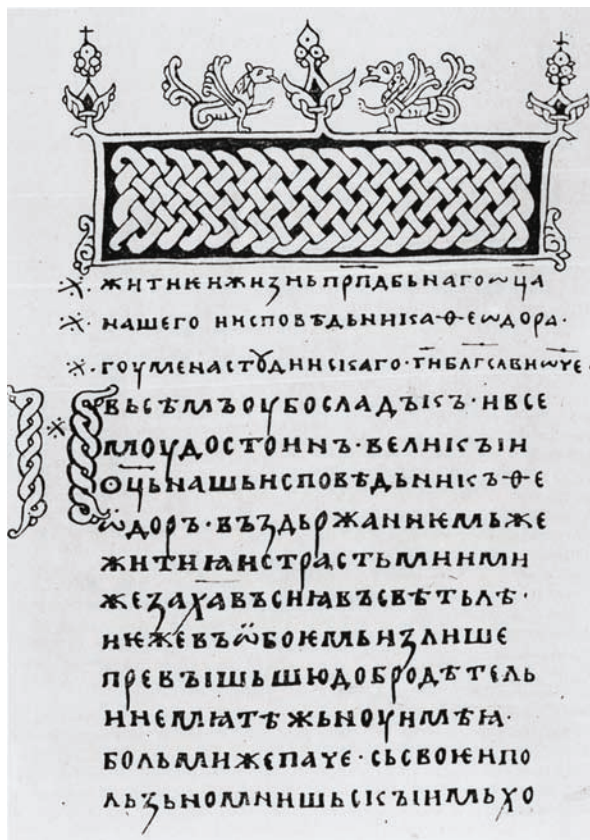 ※· житиѥ и жизнь прп҃дбьнаго ѡц҃а
※· нашего и исповѣдьника ѳеѡдора·
※· гоумена стꙋдиискаго· ги҃ блг҃слви ѡч҃е·
вьсѣмъ оубо сладъкъ· и все
моу достоинъ· великꙑи
оц҃ь нашь исповѣдьникъ ѳе
ѡдоръ· въздьржаниѥмь же
жития и страстьми ими
же за х҃а въсиꙗвъ свѣтьлѣ·
иже въ ѡбоѥмь излише
превꙑшьшю добродѣтель
и не мꙗтежьноу имѣꙗ·
больми же паче· сь своѥи по
льзьно мнишьскꙑимь хо